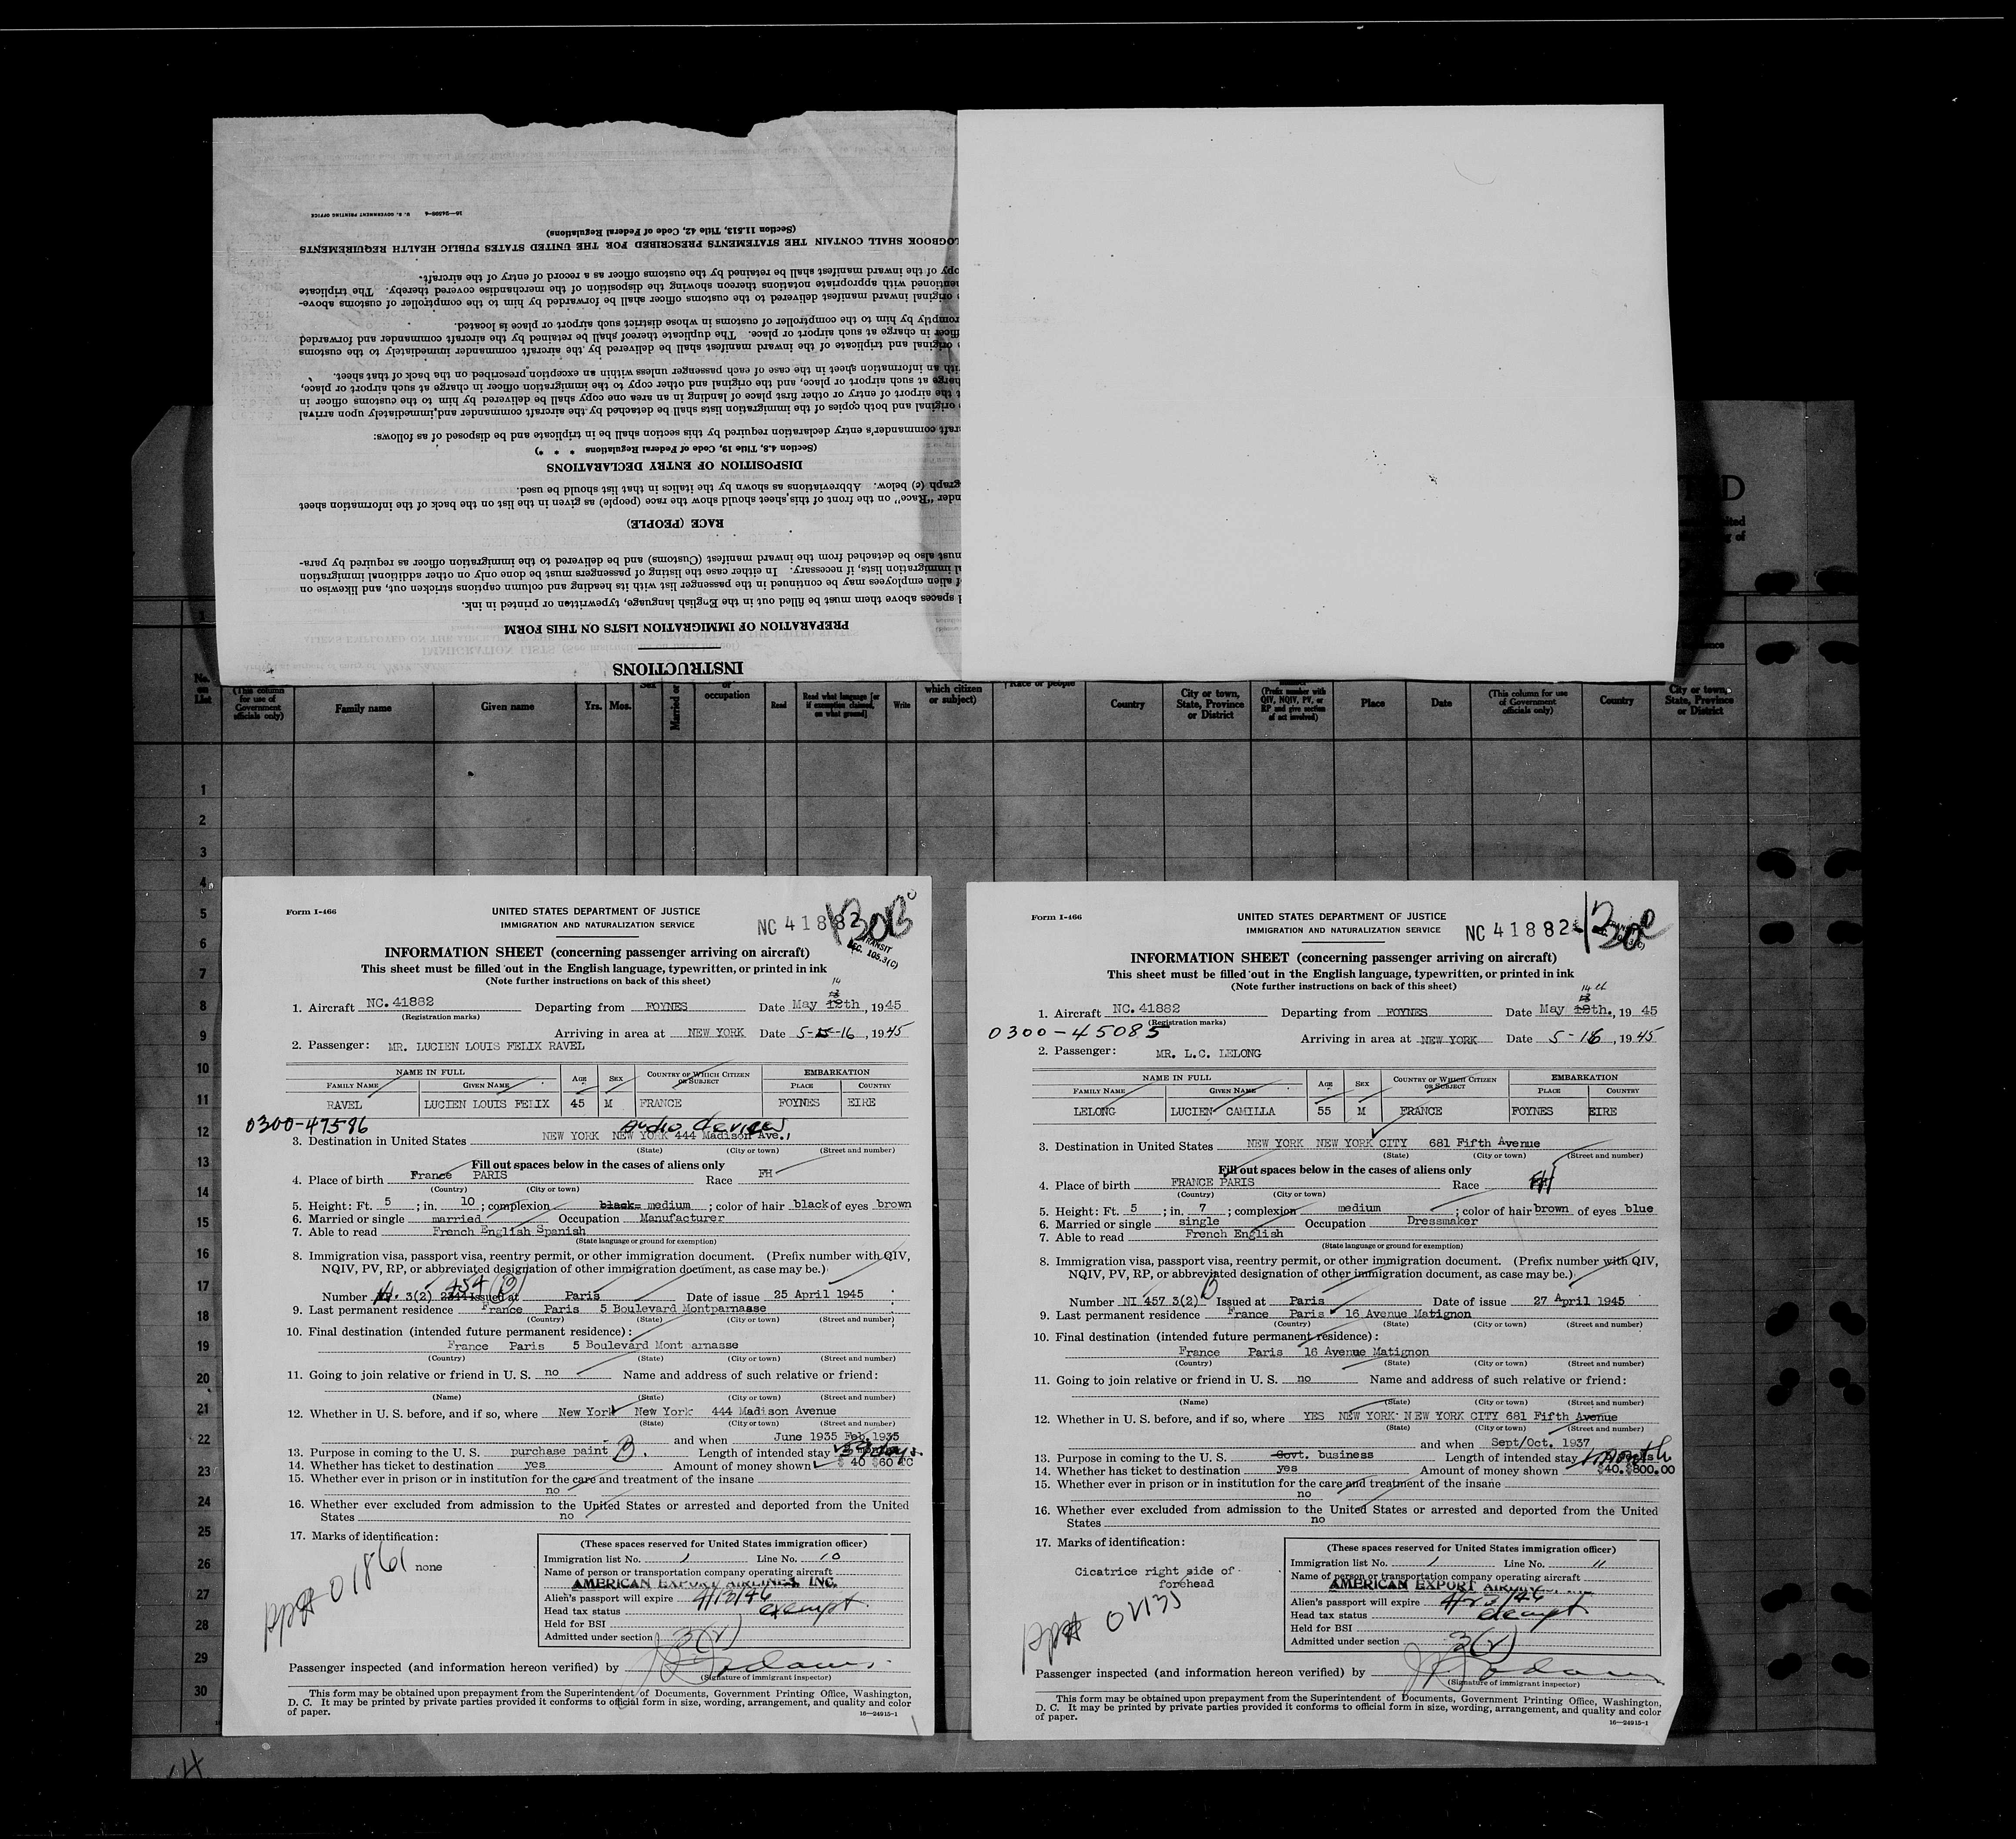 INSTRUCTIONS
PREPARATION OF IMMIGRATION LISTS ON THIS FORM
d spaces above them must be filled out in the English language, typewritten or printed in ink.
of alien employees may be continued in the passenger list with its heading and column captions stricken out, and likewise on
al immigration lists, if necessary. In either case the listing of passengers must be done only on other additional immigration
must also be detached from the inward manifest (Customs) and be delivered to the immigration officer as required by para-
RACE (PEOPLE)
nder "Race" on the front of this sheet should show the race (people) as given in the list on the back of the information sheet
graph (c) below. Abbreviations as shown by the italics in that list should be used.
DISPOSITION OF ENTRY DECLARATIONS
(Section 4.8, Title 19, Code of Federal Regulations * * *)
raft commander's entry declaration required by this section shall be in triplicate and be disposed of as follows:
original and both copies of the immigration lists shall be detached by the aircraft commander and, immediately upon arrival
t the airport of entry or other first place of landing in an area one copy shall be delivered by him to the customs officer in
harge at such airport or place, and the original and other copy to the immigration officer in charge at such airport or place,
ith an information sheet in the case of each passenger unless within an exception prescribed on the back of that sheet.
original and triplicate of the inward manifest shall be delivered by the aircraft commander immediately to the customs
fficer in charge at such airport or place. The duplicate thereof shall be retained by the aircraft commander and forwarded
romptly by him to the comptroller of customs in whose district such airport or place is located.
original inward manifest delivered to the customs officer shall be forwarded by him to the comptroller of customs above-
mentioned with appropriate notations thereon showing the disposition of the merchandise covered thereby. The triplicate
opy of the inward manifest shall be retained by the customs officer as a record of entry of the aircraft.
LOGBOOK SHALL CONTAIN THE STATEMENTS PRESCRIBED FOR THE UNITED STATES PUBLIC HEALTH REQUIREMENTS
(Section 11.513, Title 42, Code of Federal Regulations)
16—24598-4 U. S. GOVERNMENT PRINTING OFFICE
No. on List
(This column for use of Government officials only)
Family name
Given name
Yrs. Mos.
Sex
Married or
or occupation
Read
Read what language [or if exemption claimed, on what ground]
Write
which citizen or subject)
Race or people
Country
City or town, State, Province or District
(Prefix number with QIV, NQIV, PV, or RP and give section of act involved)
Place
Date
(This column for use of Government officials only)
Country
City or town, State, Province or District
1
2
3
4
5
6
7
8
9
10
11
12
13
14
15
16
17
18
19
20
21
22
23
24
25
26
27
28
29
30
Form I-466
UNITED STATES DEPARTMENT OF JUSTICE
IMMIGRATION AND NATURALIZATION SERVICE
NC 41882
TRANSIT
SEC. 105.3(C)
INFORMATION SHEET (concerning passenger arriving on aircraft)
This sheet must be filled out in the English language, typewritten, or printed in ink
(Note further instructions on back of this sheet)
14
1. Aircraft NC.41882 Departing from FOYNES Date May 12th, 1945
(Registration marks)
Arriving in area at NEW YORK Date 5-15-16, 1945
2. Passenger: MR. LUCIEN LOUIS FELIX RAVEL
NAME IN FULL AGE SEX COUNTRY OF WHICH CITIZEN OR SUBJECT EMBARKATION
FAMILY NAME GIVEN NAME PLACE COUNTRY
RAVEL LUCIEN LOUIS FELIX 45 M FRANCE FOYNES EIRE
0300-47586 Audio devices
3. Destination in United States NEW YORK NEW YORK 444 Madison Ave.,
(State) (City or town) (Street and number)
Fill out spaces below in the cases of aliens only
4. Place of birth France PARIS Race FH
(Country) (City or town)
5. Height: Ft. 5 ; in. 10 ; complexion black= medium ; color of hair black of eyes brown
6. Married or single married Occupation Manufacturer
7. Able to read French English Spanish
(State language or ground for exemption)
8. Immigration visa, passport visa, reentry permit, or other immigration document. (Prefix number with QIV,
NQIV, PV, RP, or abbreviated designation of other immigration document, as case may be.)
454
Number 3(2) Issued at Paris Date of issue 25 April 1945
9. Last permanent residence France Paris 5 Boulevard Montparnasse
(Country) (State) (City or town) (Street and number)
10. Final destination (intended future permanent residence):
France Paris 5 Boulevard Mont arnasse
(Country) (State) (City or town) (Street and number)
11. Going to join relative or friend in U. S. no Name and address of such relative or friend:
(Name) (State) (City or town) (Street and number)
12. Whether in U. S. before, and if so, where New York New York 444 Madison Avenue
(State) (City or town) (Street and number)
and when June 1935 Feb. 1935
13. Purpose in coming to the U. S. purchase paint Length of intended stay
14. Whether has ticket to destination yes Amount of money shown $ 40 $60 TC
15. Whether ever in prison or in institution for the care and treatment of the insane
no
16. Whether ever excluded from admission to the United States or arrested and deported from the United
States no
17. Marks of identification:
none
pp# 01861
(These spaces reserved for United States immigration officer)
Immigration list No. 1 Line No. 10
Name of person or transportation company operating aircraft
AMERICAN EXPORT AIRLINES, INC.
Alien's passport will expire 4/13/46
Head tax status exempt
Held for BSI
Admitted under section 3(2)
Passenger inspected (and information hereon verified) by
(Signature of immigrant inspector)
This form may be obtained upon prepayment from the Superintendent of Documents, Government Printing Office, Washington,
D. C. It may be printed by private parties provided it conforms to official form in size, wording, arrangement, and quality and color
of paper. 16—24915-1
Form I-466
UNITED STATES DEPARTMENT OF JUSTICE
IMMIGRATION AND NATURALIZATION SERVICE
NC 41882
INFORMATION SHEET (concerning passenger arriving on aircraft)
This sheet must be filled out in the English language, typewritten, or printed in ink
(Note further instructions on back of this sheet)
14th
1. Aircraft NC.41882 Departing from FOYNES Date May 12th., 1945
(Registration marks)
0300-45085
Arriving in area at NEW YORK Date 5-16, 1945
2. Passenger: MR. L.C. LELONG
NAME IN FULL AGE SEX COUNTRY OF WHICH CITIZEN OR SUBJECT EMBARKATION
FAMILY NAME GIVEN NAME PLACE COUNTRY
LELONG LUCIEN CAMILLA 55 M FRANCE FOYNES EIRE
3. Destination in United States NEW YORK NEW YORK CITY 681 Fifth Avenue
(State) (City or town) (Street and number)
Fill out spaces below in the cases of aliens only
4. Place of birth FRANCE PARIS Race
(Country) (City or town)
5. Height: Ft. 5 ; in. 7 ; complexion medium ; color of hair brown of eyes blue
6. Married or single single Occupation Dressmaker
7. Able to read French English
(State language or ground for exemption)
8. Immigration visa, passport visa, reentry permit, or other immigration document. (Prefix number with QIV,
NQIV, PV, RP, or abbreviated designation of other immigration document, as case may be.)
Number NI 457 3(2) Issued at Paris Date of issue 27 April 1945
9. Last permanent residence France Paris 16 Avenue Matignon
(Country) (State) (City or town) (Street and number)
10. Final destination (intended future permanent residence):
France Paris 16 Avenue Matignon
(Country) (State) (City or town) (Street and number)
11. Going to join relative or friend in U. S. no Name and address of such relative or friend:
(Name) (State) (City or town) (Street and number)
12. Whether in U. S. before, and if so, where YES NEW YORK NEW YORK CITY 681 Fifth Avenue
(State) (City or town) (Street and number)
and when Sept/Oct. 1937
13. Purpose in coming to the U. S. Govt. business Length of intended stay 1 month
14. Whether has ticket to destination yes Amount of money shown $40. $800.00
15. Whether ever in prison or in institution for the care and treatment of the insane
no
16. Whether ever excluded from admission to the United States or arrested and deported from the United
States no
17. Marks of identification:
Cicatrice right side of
forehead
(These spaces reserved for United States immigration officer)
Immigration list No. 1 Line No. 11
Name of person or transportation company operating aircraft
AMERICAN EXPORT
Alien's passport will expire
Head tax status exempt
Held for BSI
Admitted under section 3(2)
Passenger inspected (and information hereon verified) by
(Signature of immigrant inspector)
This form may be obtained upon prepayment from the Superintendent of Documents, Government Printing Office, Washington,
D. C. It may be printed by private parties provided it conforms to official form in size, wording, arrangement, and quality and color
of paper. 16—24915-1